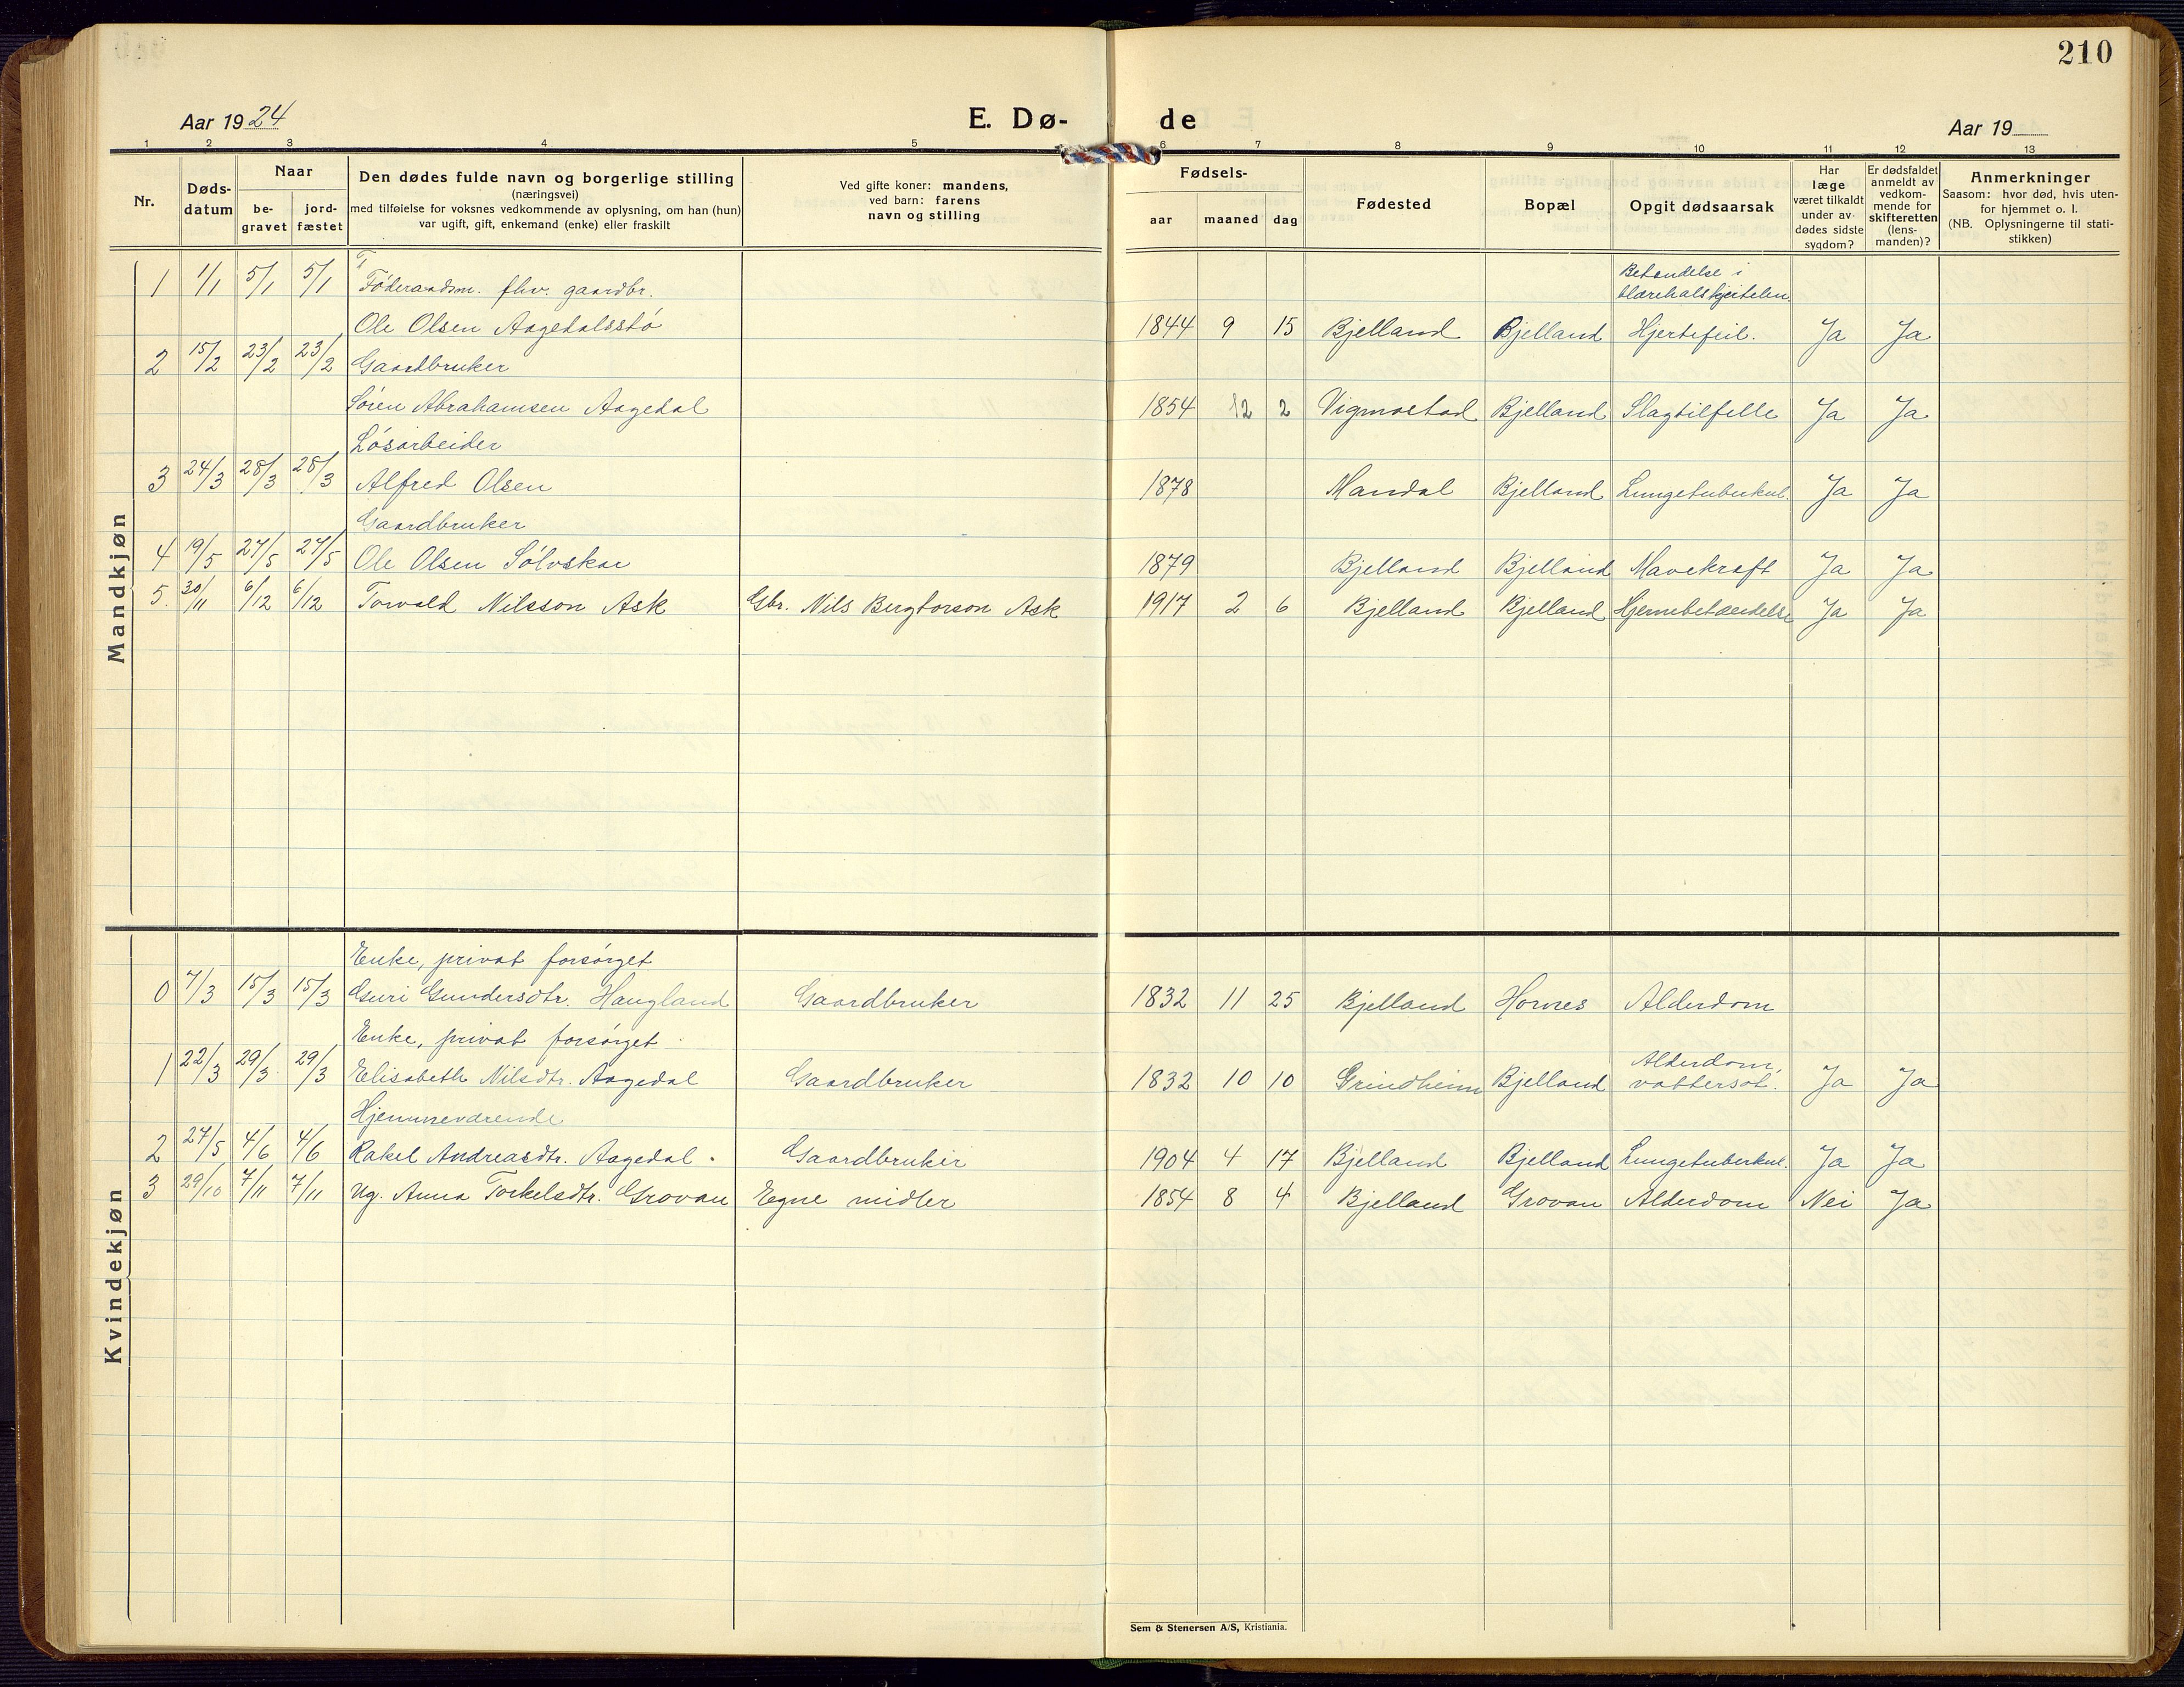 210
Aar 1924
E. Dø-
de
Aar 19
1 2 3 4 5 6 7 8 9 10 11 12 13
Nr.
Døds-
datum
Naar
be-
gravet
jord-
fæstet
Den dødes fulde navn og borgerlige stilling
(næringsvei)
med tilføielse for voksnes vedkommende av oplysning, om han (hun)
var ugift, gift, enkemand (enke) eller fraskilt
Ved gifte koner: mandens,
ved barn: farens
navn og stilling
Fødsels-
aar maaned dag
Fødested
Bopæl
Opgit dødsaarsak
Har
læge
været tilkaldt
under av-
dødes sidste
sygdom?
Er dødsfaldet
anmeldt av
vedkom-
mende for
skifteretten
(lens-
manden)?
Anmerkninger
Saasom: hvor død, hvis uten-
for hjemmet o. l.
(NB. Oplysningerne til stati-
stikken)
Mandkjøn
Betændelse i
1 1/1 5/1 5/1 Föderaadsm. fhv. gaardbr. blærehalskjertelen.
Ole Olsen Aagedalsstö 1844 9 15 Bjelland Bjelland Hjertefeil. Ja Ja
2 15/2 23/2 23/2 Gaardbruker
Sören Abrahamsen Aagedal 1854 12 2 Vigmostad Bjelland Slagtilfelle Ja Ja
Lösarbeider
3 24/3 28/3 28/3 Alfred Olsen 1878 Mandal Bjelland Lungetuberkul. Ja Ja
Gaardbruker
4 19/5 27/5 27/5 Ole Olsen Sölvskar 1879 Bjelland Bjelland Mavekræft Ja Ja
5. 30/11 6/12 6/12 Torvald Nilsson Ask Gbr. Nils Bergtorson Ask 1917 2 6 Bjelland Bjelland Hjernebetændelse Ja Ja
Kvindekjøn
Enke, privat forsörget
0 7/3 15/3 15/3 Guri Gundersdtr. Haugland Gaardbruker 1832 11 25 Bjelland Hornes Alderdom
Enke, privat forsörget
Alderdom,
1 22/3 29/3 29/3 Elisabeth Nilsdtr. Aagedal Gaardbruker 1832 10 10 Grindheim Bjelland vattersot. Ja Ja
Hjemmeværende
2 27/5 4/6 4/6 Rakel Andreasdtr. Aagedal. Gaardbruker 1904 4 17 Bjelland Bjelland Lungetuberkul. Ja Ja
3 29/10 7/11 7/11 Ug. Anna Torkelsdtr. Grovan Egne midler 1854 8 4 Bjelland Grovan Alderdom Nei Ja
Sem & Stenersen A/S, Kristiania.